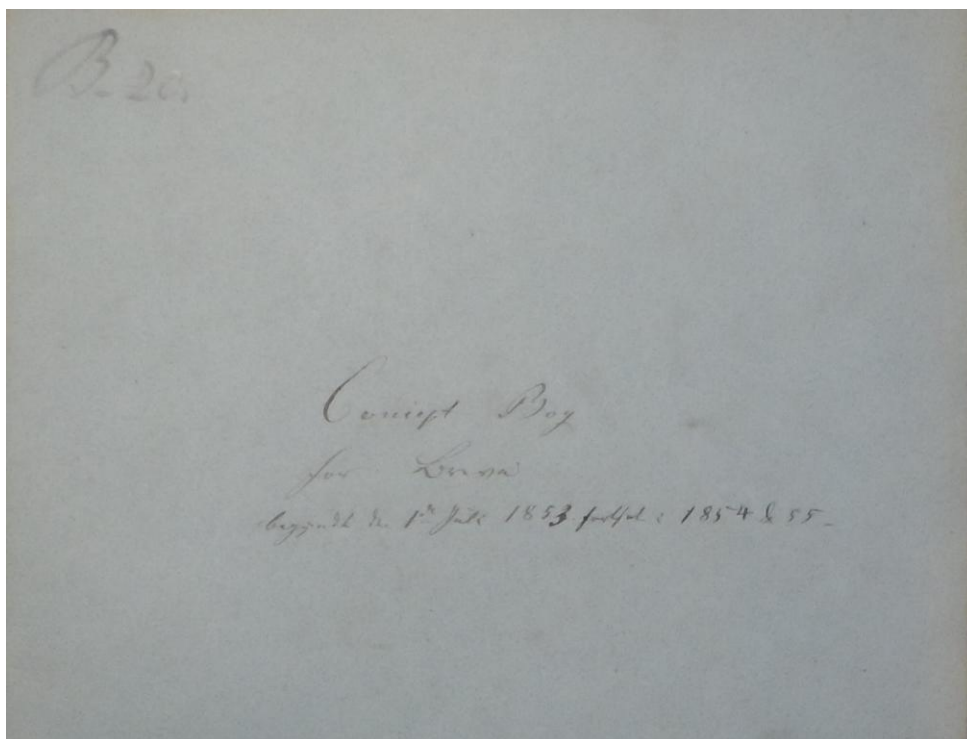 B. 20.
Concept Bog
for Breve
begyndt den 1ste Juli 1853 fortsat i 1854 & 55 -